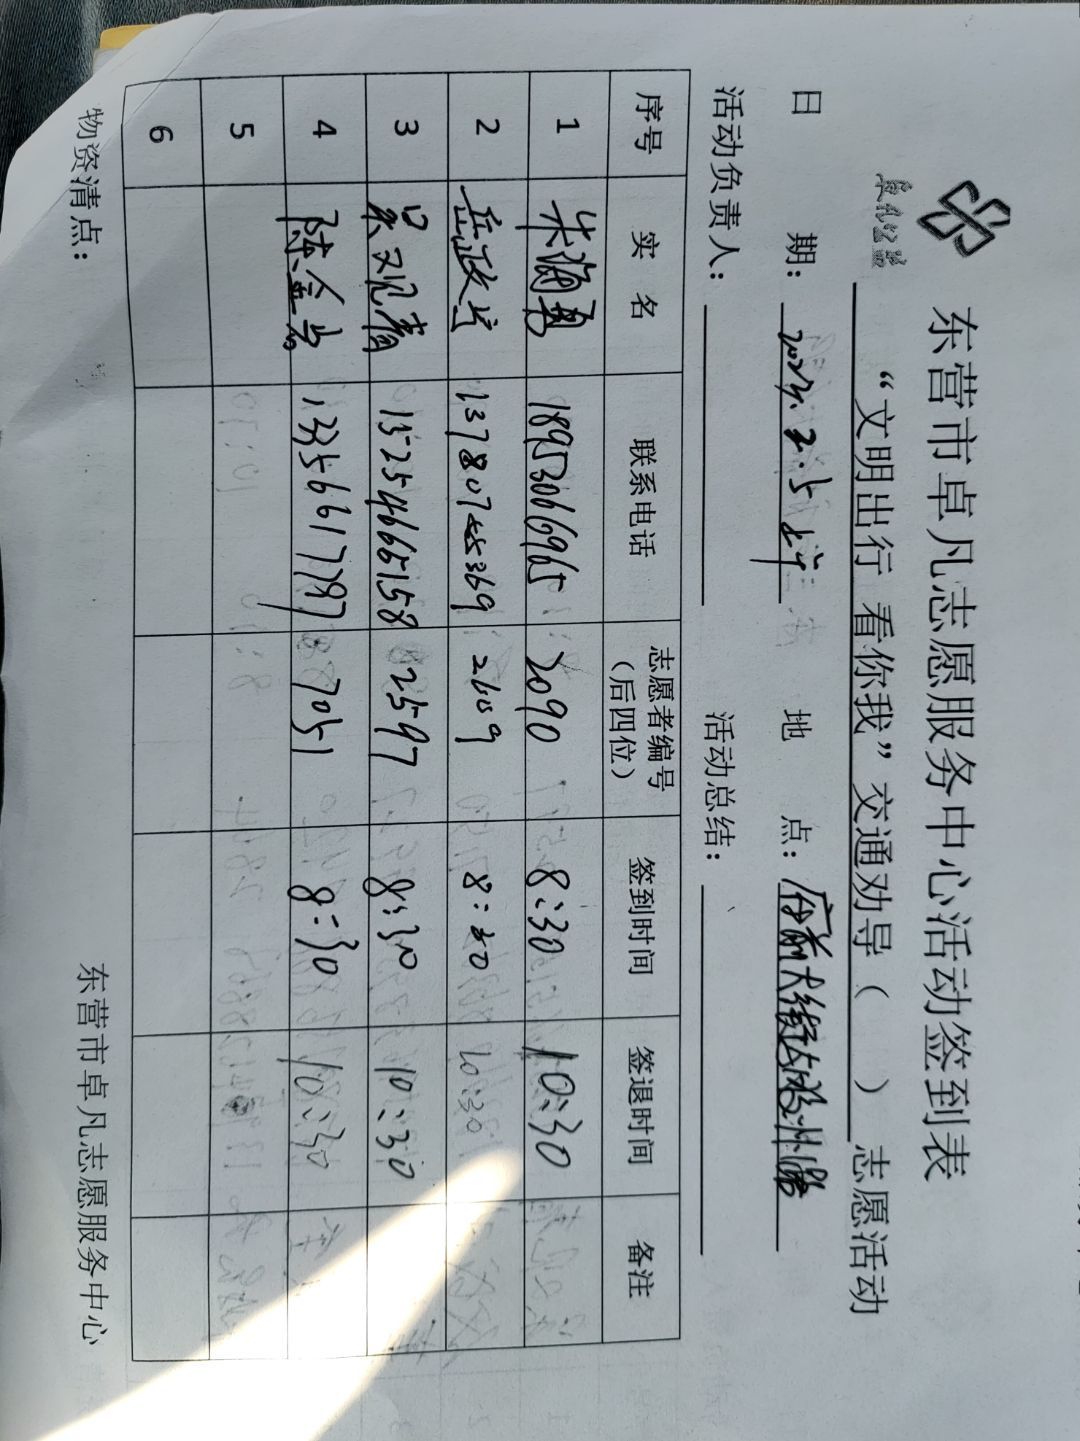 卓凡公益
东营市卓凡志愿服务中心活动签到表
“文明出行 看你我”交通劝导（ ）志愿活动
日 期： 2024.2.5 上午 地 点：府前大街与胶州路
活动负责人： 活动总结：
序号 实 名 联系电话 志愿者编号（后四位） 签到时间 签退时间 备注
1 朱海勇 18953066965 2090 8:30 10:30
2 岳政 2609 8:30 10:30
3 吴观青 15254666158 2597 8:30 10:30
4 陈金 13356617797 7051 8:30 10:30
5
6
物资清点： 东营市卓凡志愿服务中心